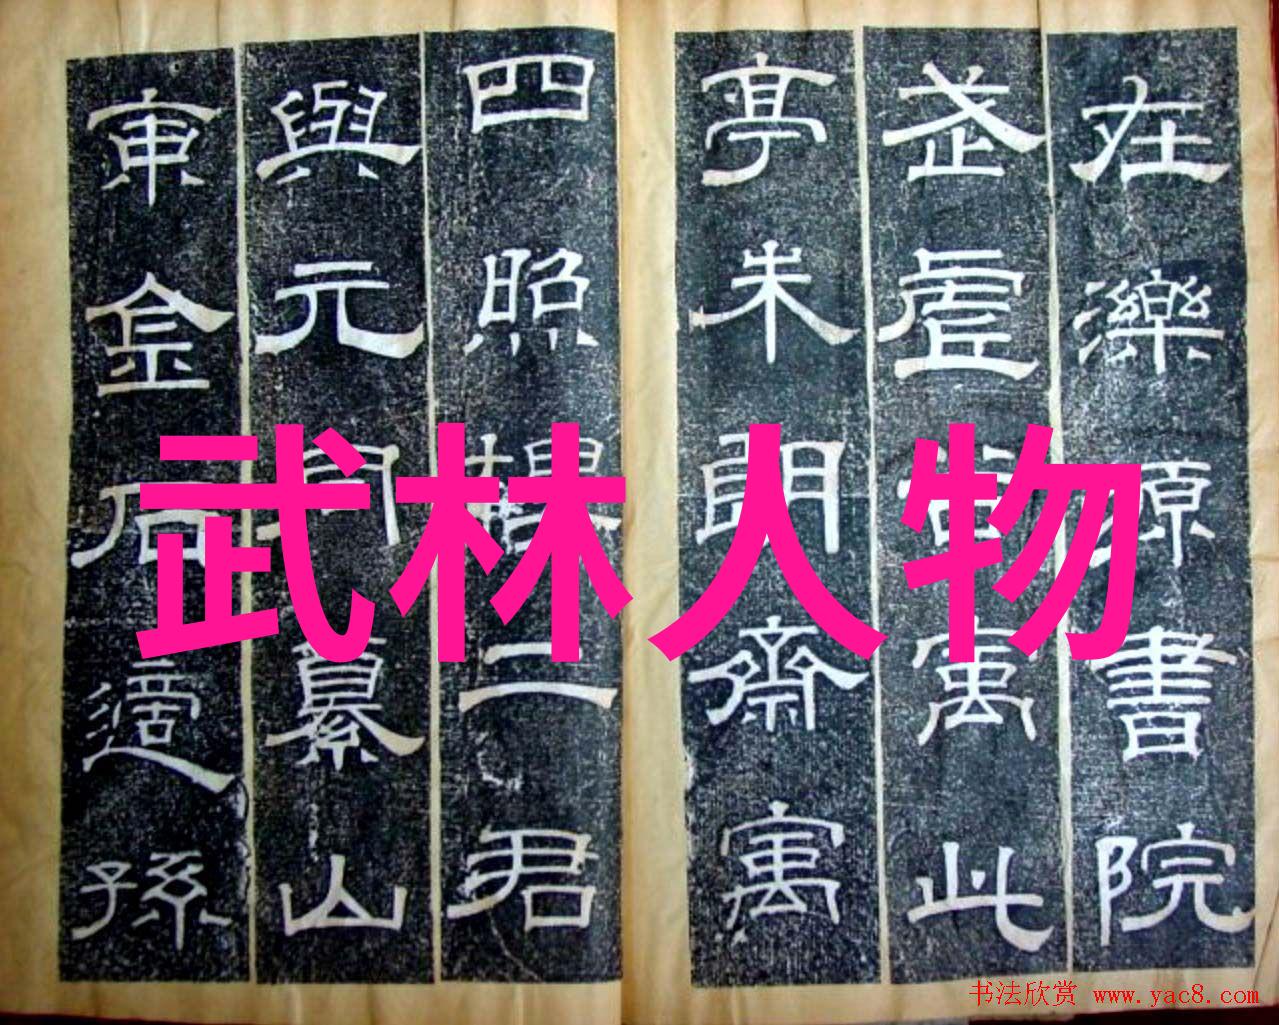 在濼源書院
武虛谷寓此
亭朱朗齋寓
四照樓二君
與元同纂山
東金石適孫
武林人物
书法欣赏 www.yac8.com